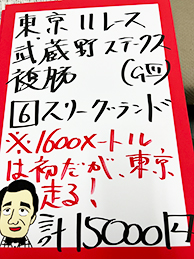 東京11レース
武蔵野ステークス
複勝 (GIII)
6 スリーグランド
※1600メートル
は初だが、東京
走る!
計15000円